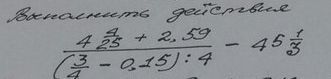 Выполнить действия
4 4/25 + 2,59
/ (3/4 − 0,15) : 4 − 45 1/3